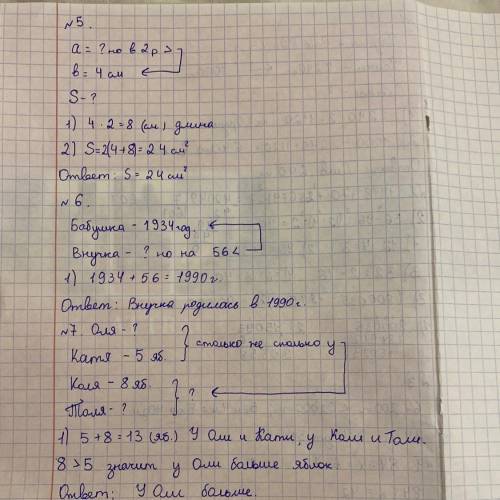 №5.
a = ? но в 2 р >
в = 4 см
S - ?
1) 4 · 2 = 8 (см) длина
2) S = 2(4+8) = 24 см²
Ответ: S = 24 см²
№6.
Бабушка - 1934 год.
Внучка - ? но на 56 <
1) 1934 + 56 = 1990 г.
Ответ: Внучка родилась в 1990 г.
№7. Оля - ?
Катя - 5 яб. } столько же сколько у
Коля - 8 яб.
Толя - ? } ?
1) 5 + 8 = 13 (яб.) У Оли и Кати, у Коли и Толи.
8 > 5 значит у Оли больше яблок.
Ответ: У Оли больше.